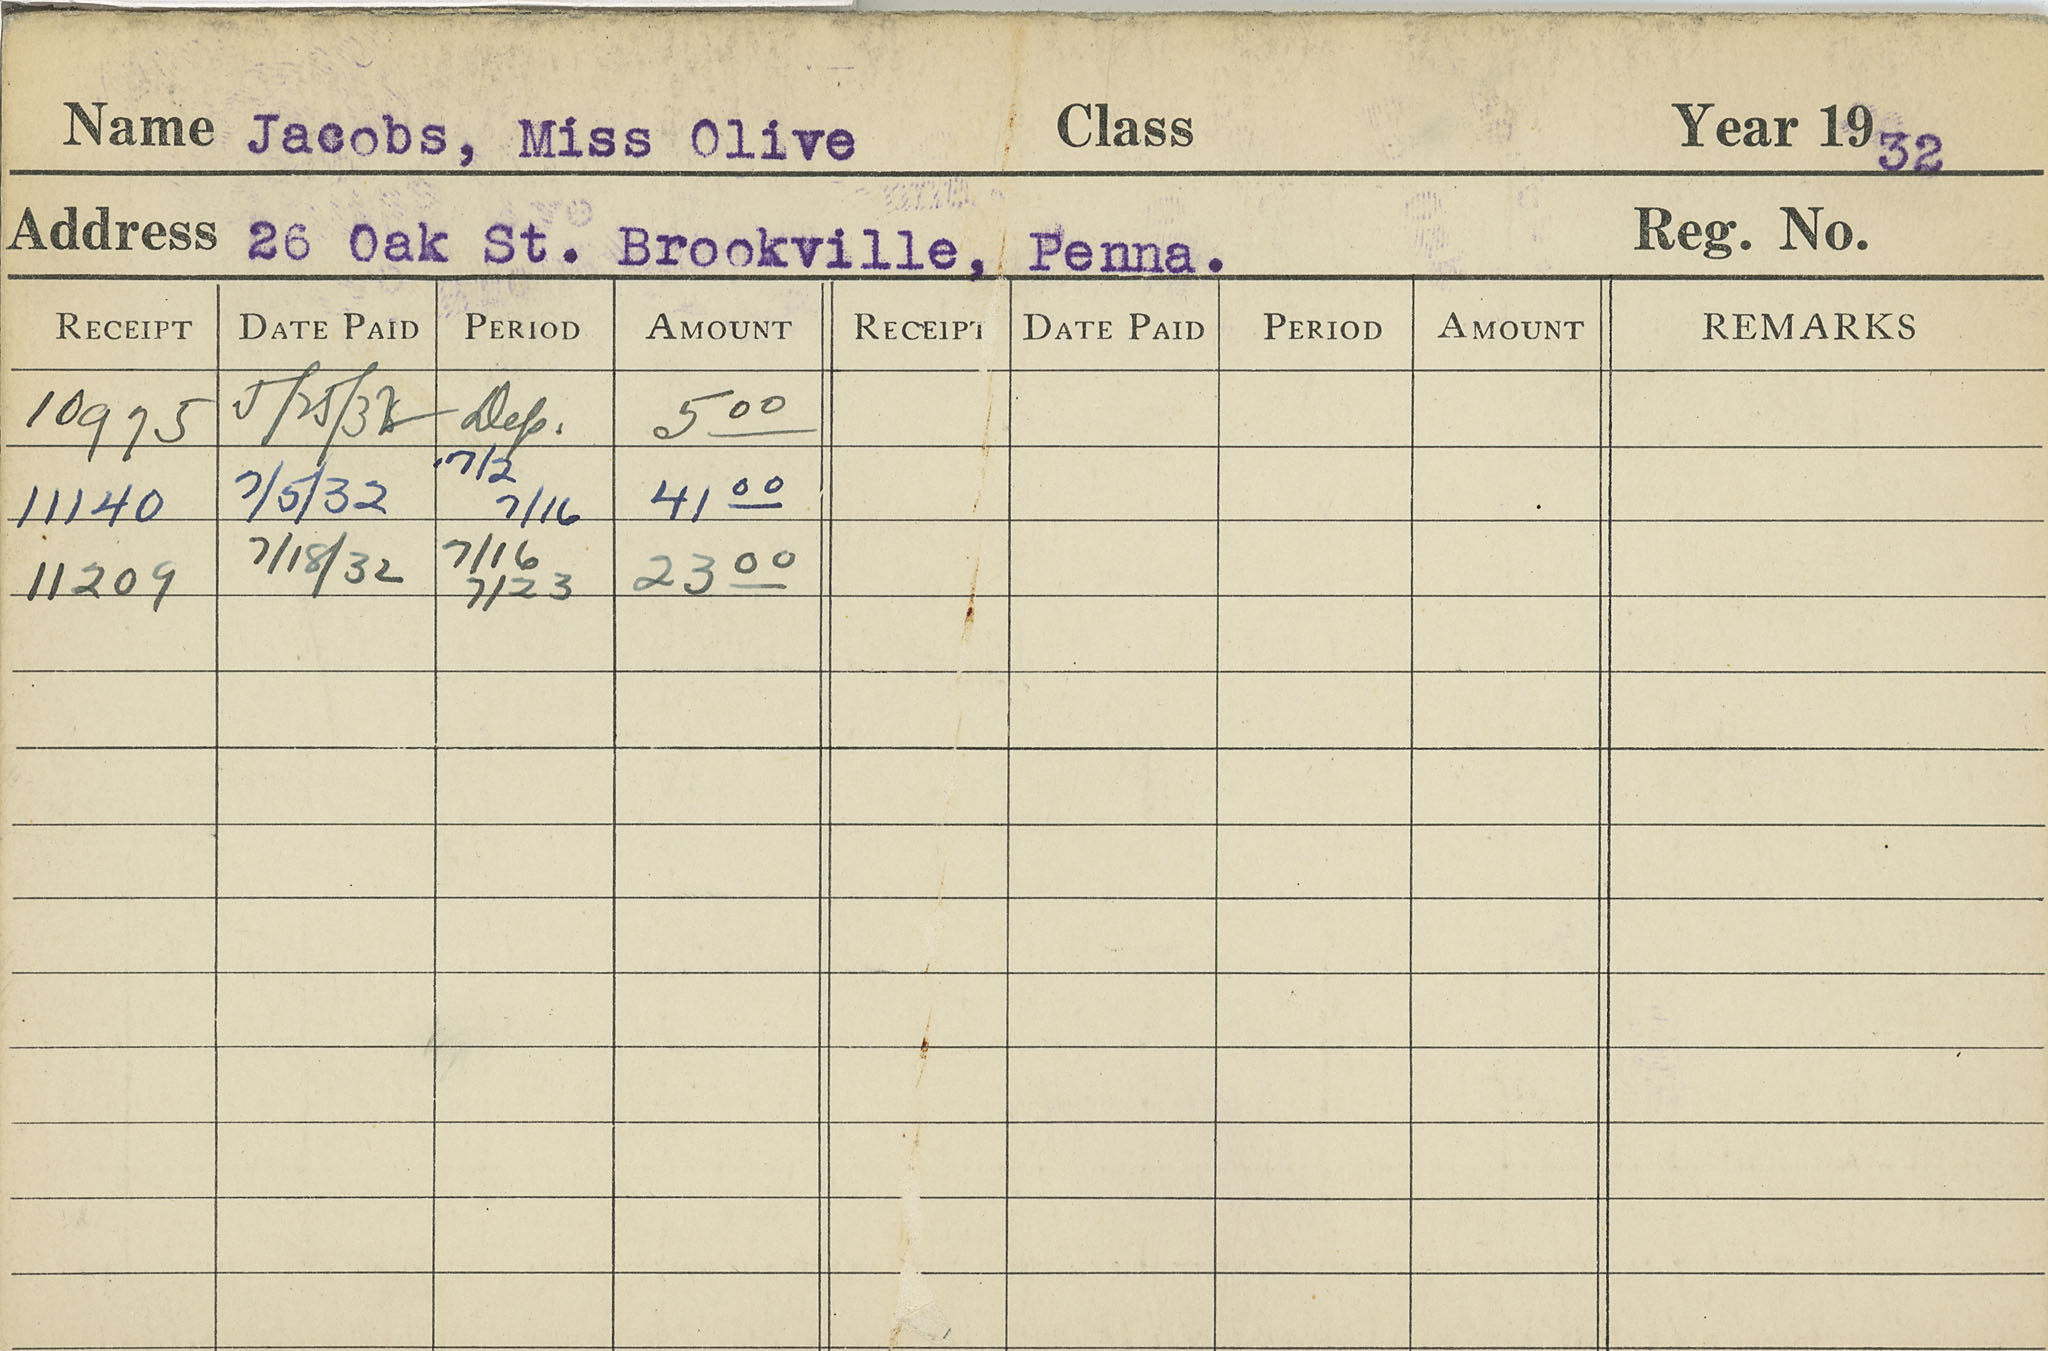 Name Jacobs, Miss Olive Class Year 1932
Address 26 Oak St. Brookville, Penna. Reg. No.
RECEIPT DATE PAID PERIOD AMOUNT RECEIPT DATE PAID PERIOD AMOUNT REMARKS
10975 5/25/32 Dep. 5 00
11140 7/5/32 7/2 7/16 41 00
11209 7/18/32 7/16 7/23 23 00